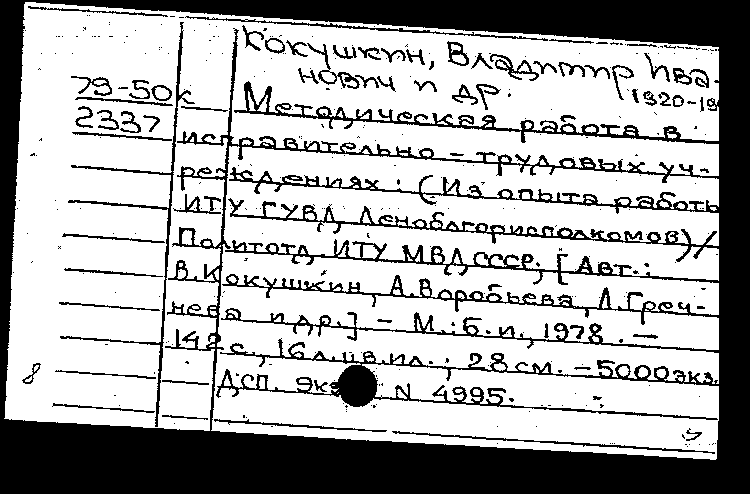 Кокушкин, Владимир Ива-
нович и др.
79-50к
2337
Методическая работа в
исправительно-трудовых уч-
реждениях: (Из опыта работы
ИТУ ГУВД Леноблгорисполкомов)/
Политотд. ИТУ МВД СССР; [Авт.:
В.Кокушкин, А.Воробьева, Л.Греч-
нева и др.] - М.: б.и., 1978. —
142 с., 16 л.цв.ил.; 28 см. - 5000 экз.
ДСП. Экз N 4995.
8